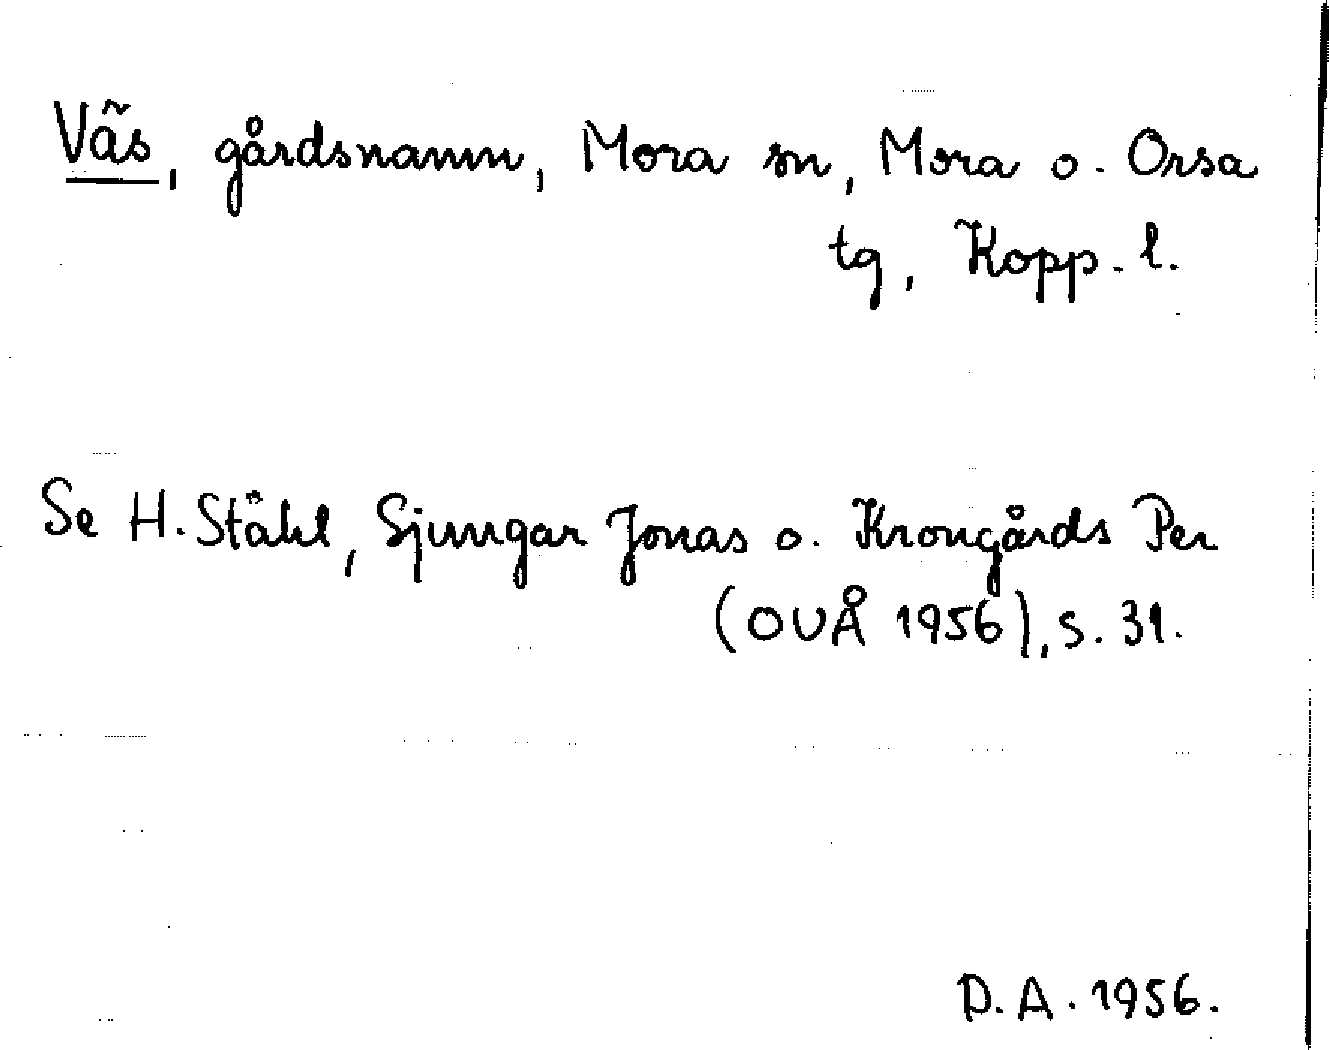 Väs, gårdsnamn, Mora sn, Mora o. Orsa
tg, Kopp. l.
Se H. Ståhl, Sjungar Jonas o. Krongårds Per
(OUÅ 1956), s. 31.
D. A. 1956.